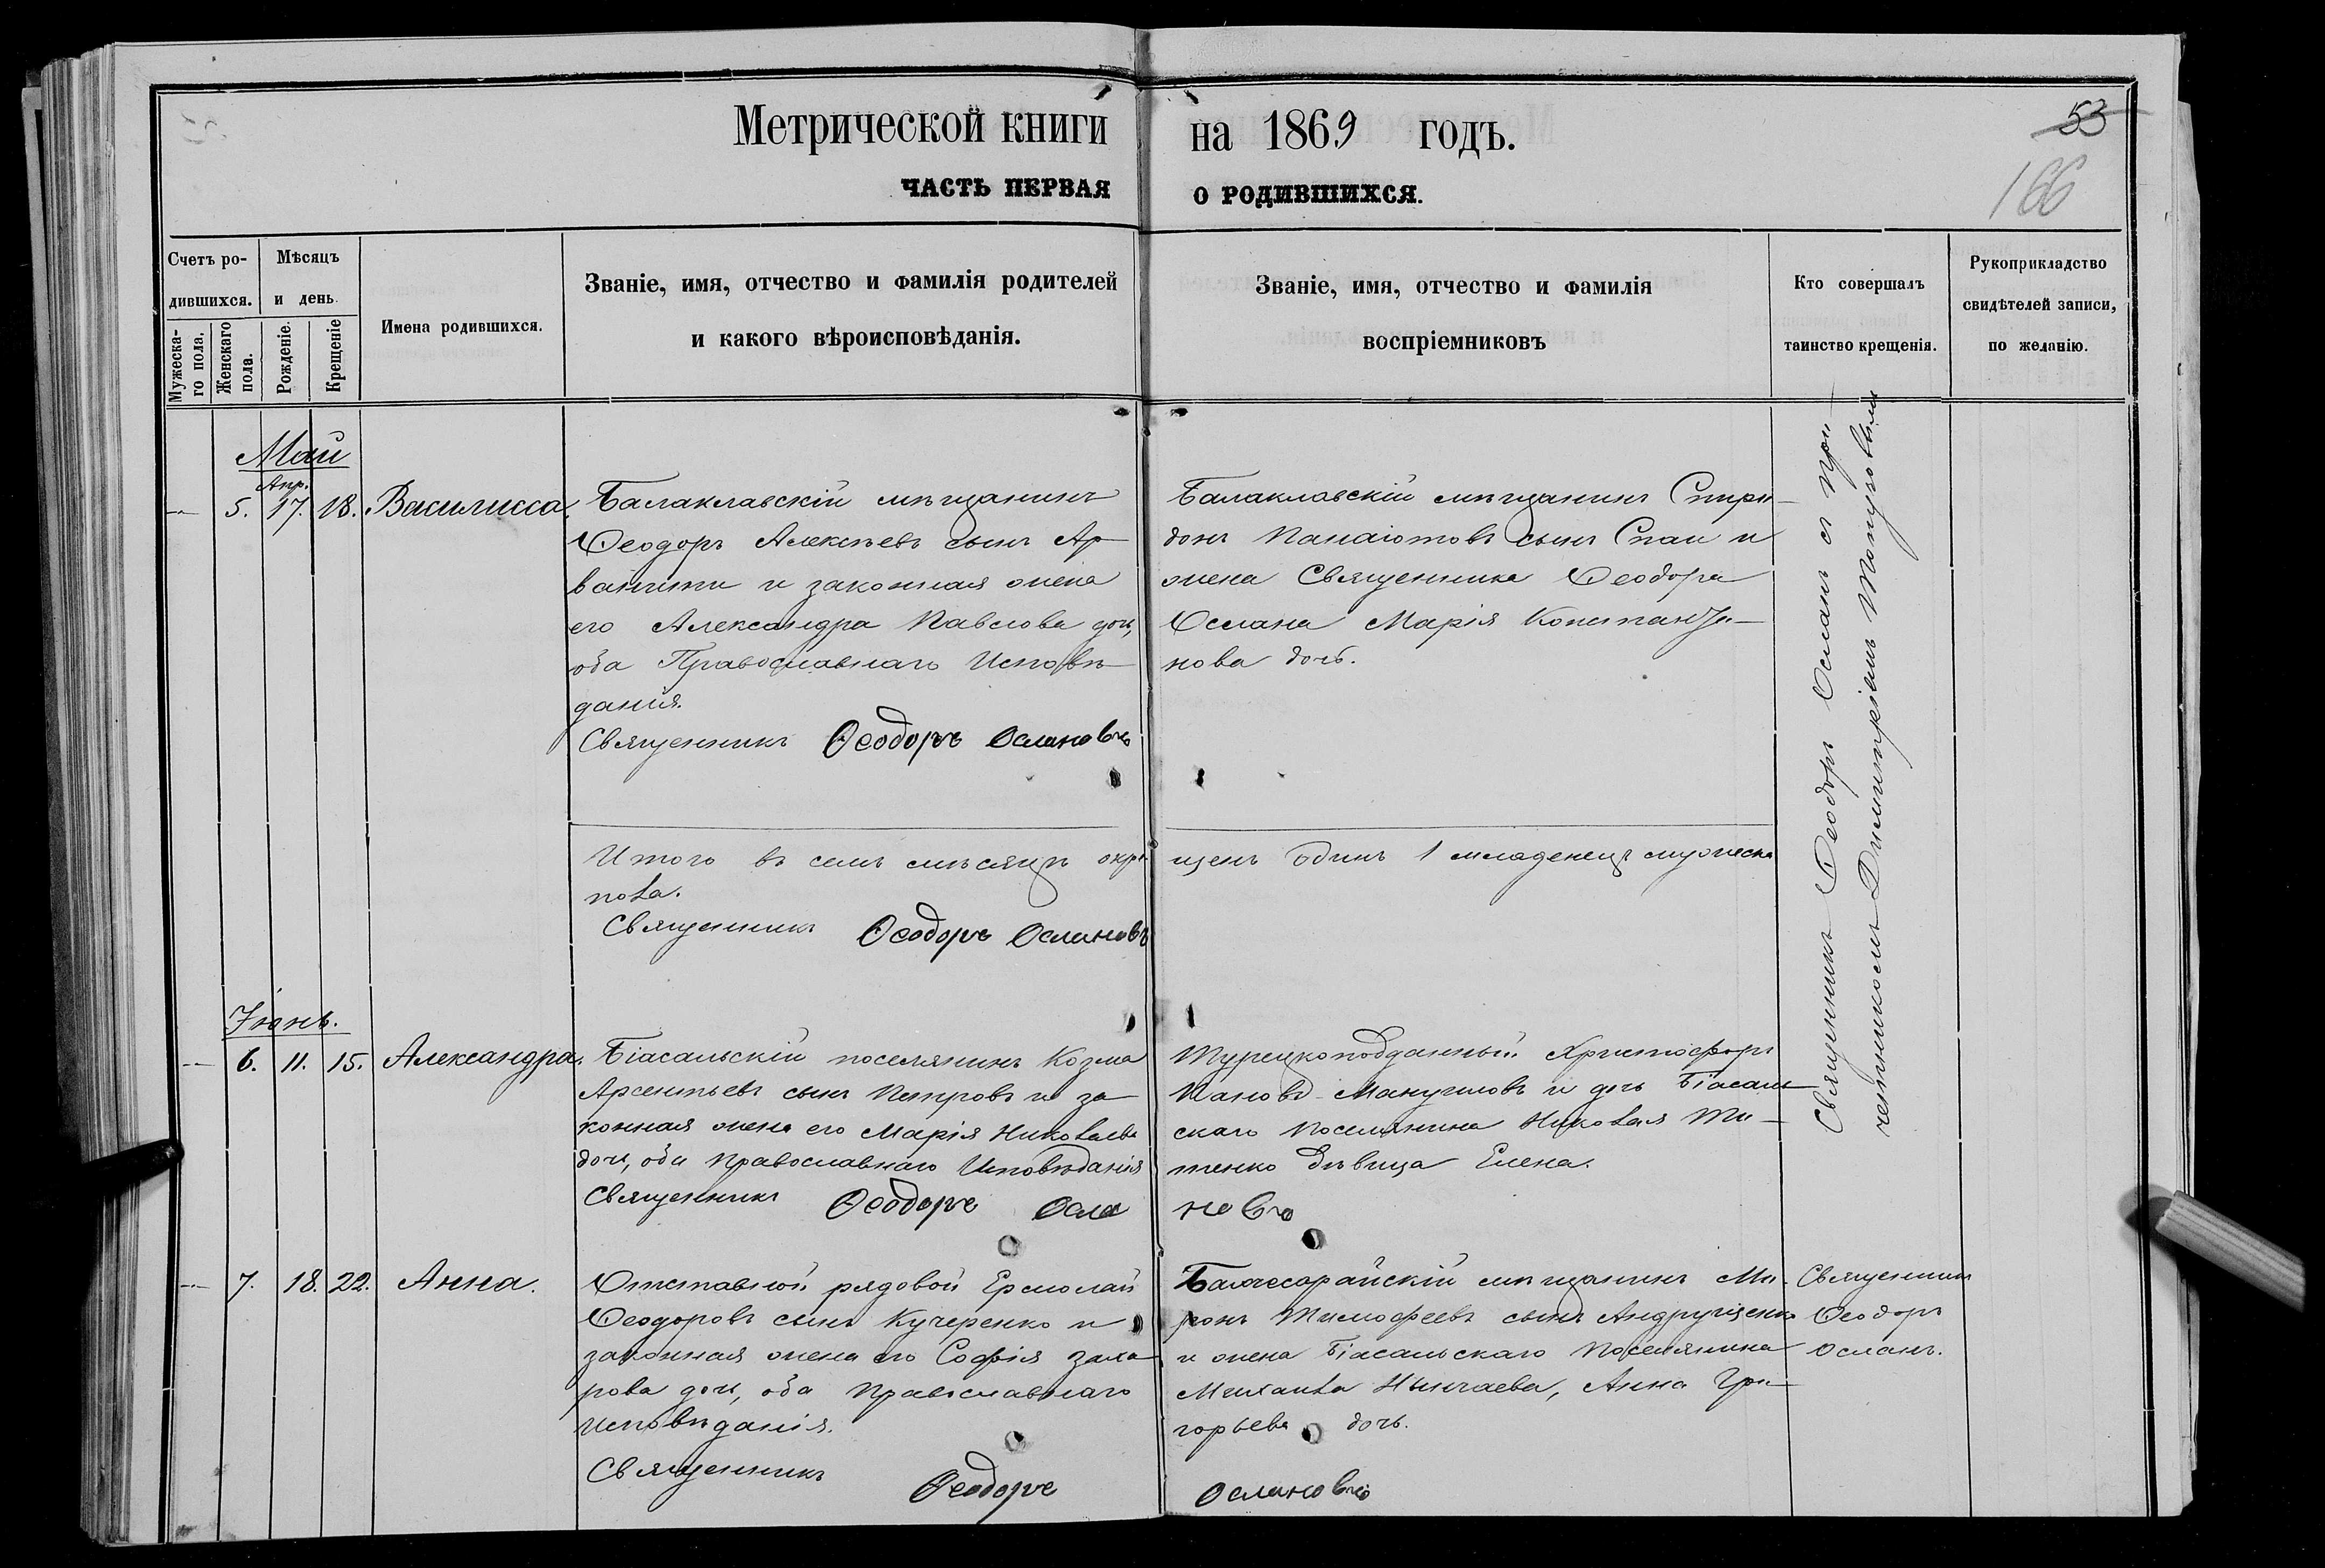 Метрической книги на 1869 годъ.
53
166
ЧАСТЬ ПЕРВАЯ О РОДИВШИХСЯ.
Счетъ родившихся.
Мужескаго пола.
Женскаго пола.
Мѣсяцъ и день.
Рожденіе.
Крещеніе
Имена родившихся.
Званіе, имя, отчество и фамилія родителей
и какого вѣроисповѣданія.
Званіе, имя, отчество и фамилія
воспріемниковъ
Кто совершалъ
таинство крещенія.
Рукоприкладство
свидѣтелей записи,
по желанію.
Май
Апр.
5. 17. 18. Василисса.
Балаклавскій мѣщанинъ
Ѳеодоръ Алексѣевъ сынъ Ар-
ванити и законная жена
его Александра Павлова дочь,
оба Православнаго Исповѣ-
данія.
Священникъ Ѳеодоръ Ослановъ
Балаклавскій мѣщанинъ Спири-
донъ Панаіотовъ сынъ Спаи и
жена Священника Ѳеодора
Ослана Марія Константи-
нова дочь.
Священникъ Ѳеодоръ Осланъ съ при-
четникомъ Димитріемъ Попуровымъ
Итого въ семъ мѣсяцѣ окре-
щенъ одинъ 1 младенецъ мужеска
пола.
Священникъ Ѳеодоръ Ослановъ
Іюнь.
6. 11. 15. Александра.
Біасальскій поселянинъ Козма
Арсентьевъ сынъ Петровъ и за-
конная жена его Марія Николаева
дочь, оба Православнаго Исповѣданія
Священникъ Ѳеодоръ Ослановъ
Турецкоподданный Христофоръ
Пановъ Мануиловъ и дочь Біасаль-
скаго поселянина Николая Ти-
тенко дѣвица Елена.
7. 18. 22. Анна.
Отставной рядовой Ермолай
Ѳеодоровъ сынъ Кучеренко и
законная жена его Софія Заха-
рова дочь, оба Православнаго
Исповѣданія.
Священникъ Ѳеодоръ Ослановъ
Бахчесарайскій мѣщанинъ Ми-
ронъ Тимофеевъ сынъ Андрущенко
и жена Біасальскаго Поселянина
Михаила Нынчаева, Анна Гри-
горьева дочь.
Священникъ
Ѳеодоръ
Осланъ.